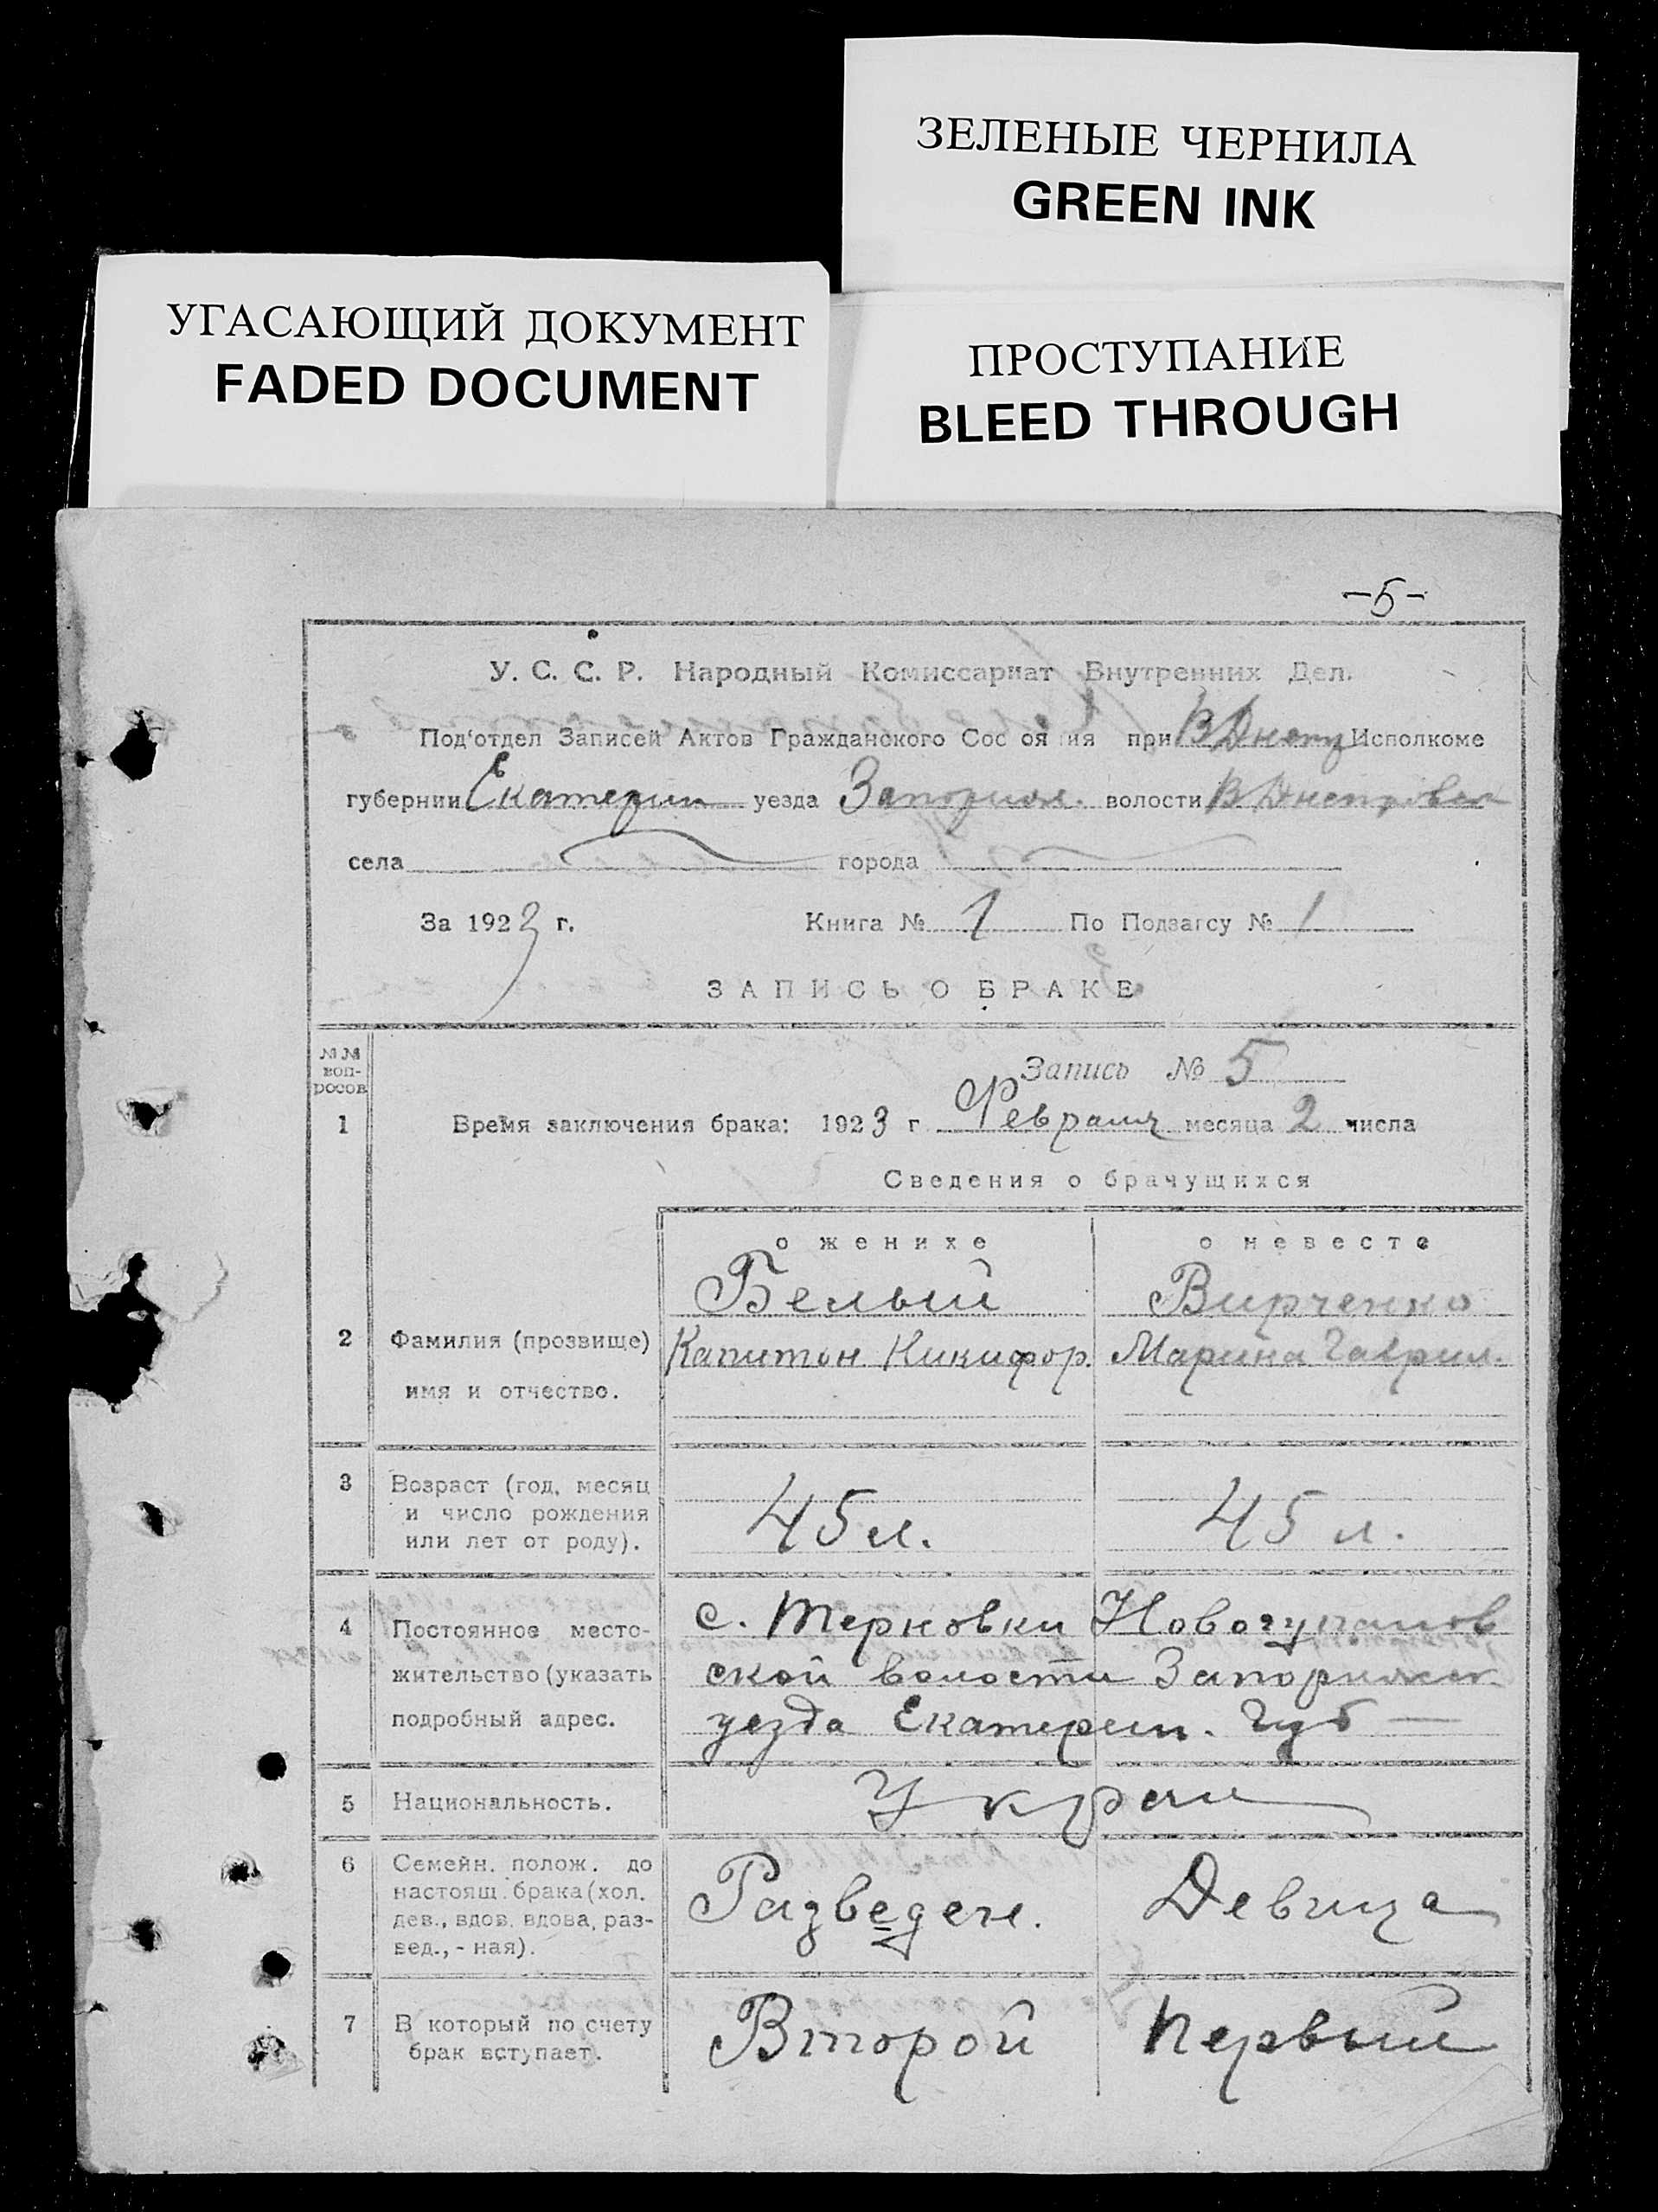 ЗЕЛЕНЫЕ ЧЕРНИЛА
GREEN INK
УГАСАЮЩИЙ ДОКУМЕНТ
FADED DOCUMENT
ПРОСТУПАНИЕ
BLEED THROUGH
-5-
У. С. С. Р. Народный Комиссариат Внутренних Дел.
Под'отдел Записей Актов Гражданского Сос оя ия при В Днепр Исполкоме
губернии Екатерин уезда Запорож. волости В Днепровск
села города
За 1923 г. Книга № 1 По Подзагсу № 1
ЗАПИСЬ О БРАКЕ
№№ воп-росов
Запись № 5
1 Время заключения брака: 1923 г Февраля месяца 2 числа
Сведения о брачущихся
о женихе о невесте
Белый Вирченко
2 Фамилия (прозвище) Капитон Никифор. Марина Гаврил.
имя и отчество.
3 Возраст (год, месяц
и число рождения 45 л. 45 л.
или лет от роду).
4 Постоянное место- с. Терновки Новогупалов
жительство (указать ской волости Запорожск.
подробный адрес. уезда Екатерин. Губ —
5 Национальность. Украи
6 Семейн. полож. до
настоящ. брака (хол.
дев., вдов. вдова, раз- Разведен. Девица
вед., - ная).
7 В который по счету Второй Первый
брак вступает.